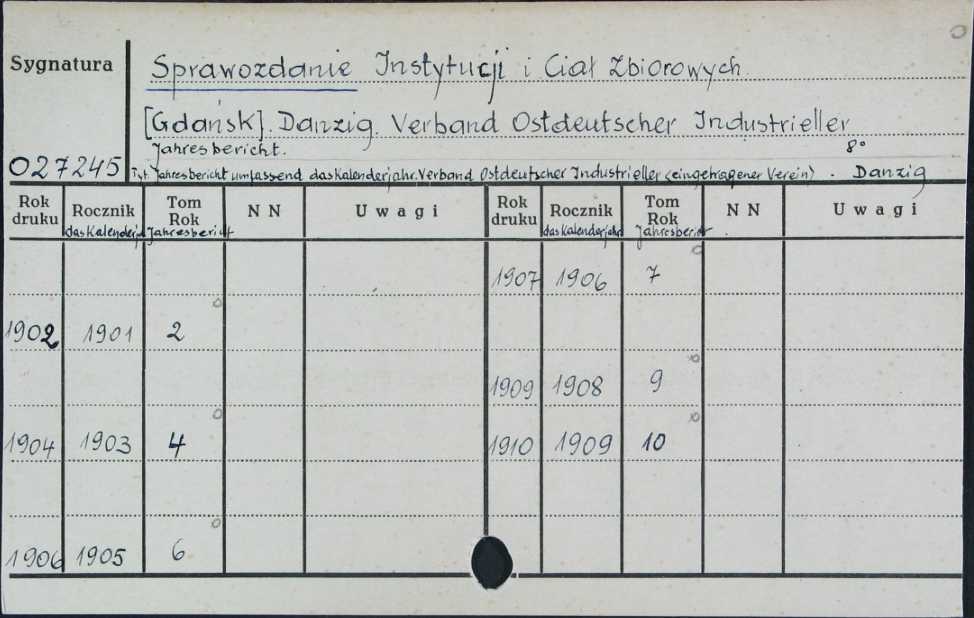 Sygnatura
Sprawozdanie Instytucji i Ciał Zbiorowych
[Gdańsk]. Danzig. Verband Ostdeutscher Industrieller
Jahresbericht. 8°
027245
Tyt. Jahresbericht umfassend das Kalenderjahr. Verband Ostdeutscher Industrieller (eingetragener Verein). Danzig
Rok druku Rocznik Tom Rok N N Uwagi Rok druku Rocznik Tom Rok N N Uwagi
das Kalenderj. Jahresbericht das Kalenderjahr Jahresbericht
1907 1906 7
1902 1901 2
1909 1908 9
1904 1903 4 1910 1909 10
1906 1905 6